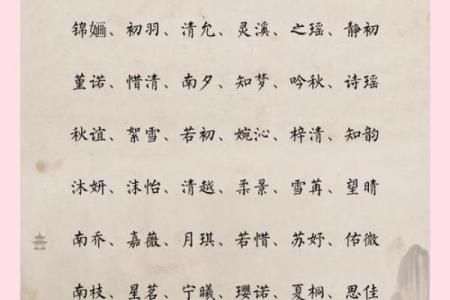 锦婳、初羽、清允、灵溪、之瑶、静初
堇诺、惜清、南夕、知梦、吟秋、诗瑶
秋谊、絮雪、若初、婉沁、梓清、知韵
沐妍、沫怡、清越、柔景、雪苒、望晴
南乔、嘉薇、月琪、若惜、苏妤、佑微
南枝、星茗、宁曦、璎诺、夏桐、思佳